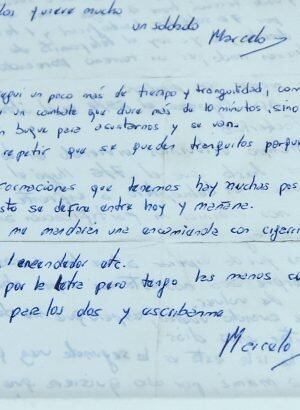 los quiere mucho
un soldado
Marcelo
segui un poco más de tiempo y tranquilidad, com
un combate que dure más de 10 minutos, sino
n buque para asustarnos y se van.
repetir que se queden tranquilos porque
formaciones que tenemos hay muchas pos
sto se define entre hoy y mañana.
me mandaran una encomienda con cigarri
encendador etc.
por la letra pero tengo las manos
para los dos y escribanme
Marcelo